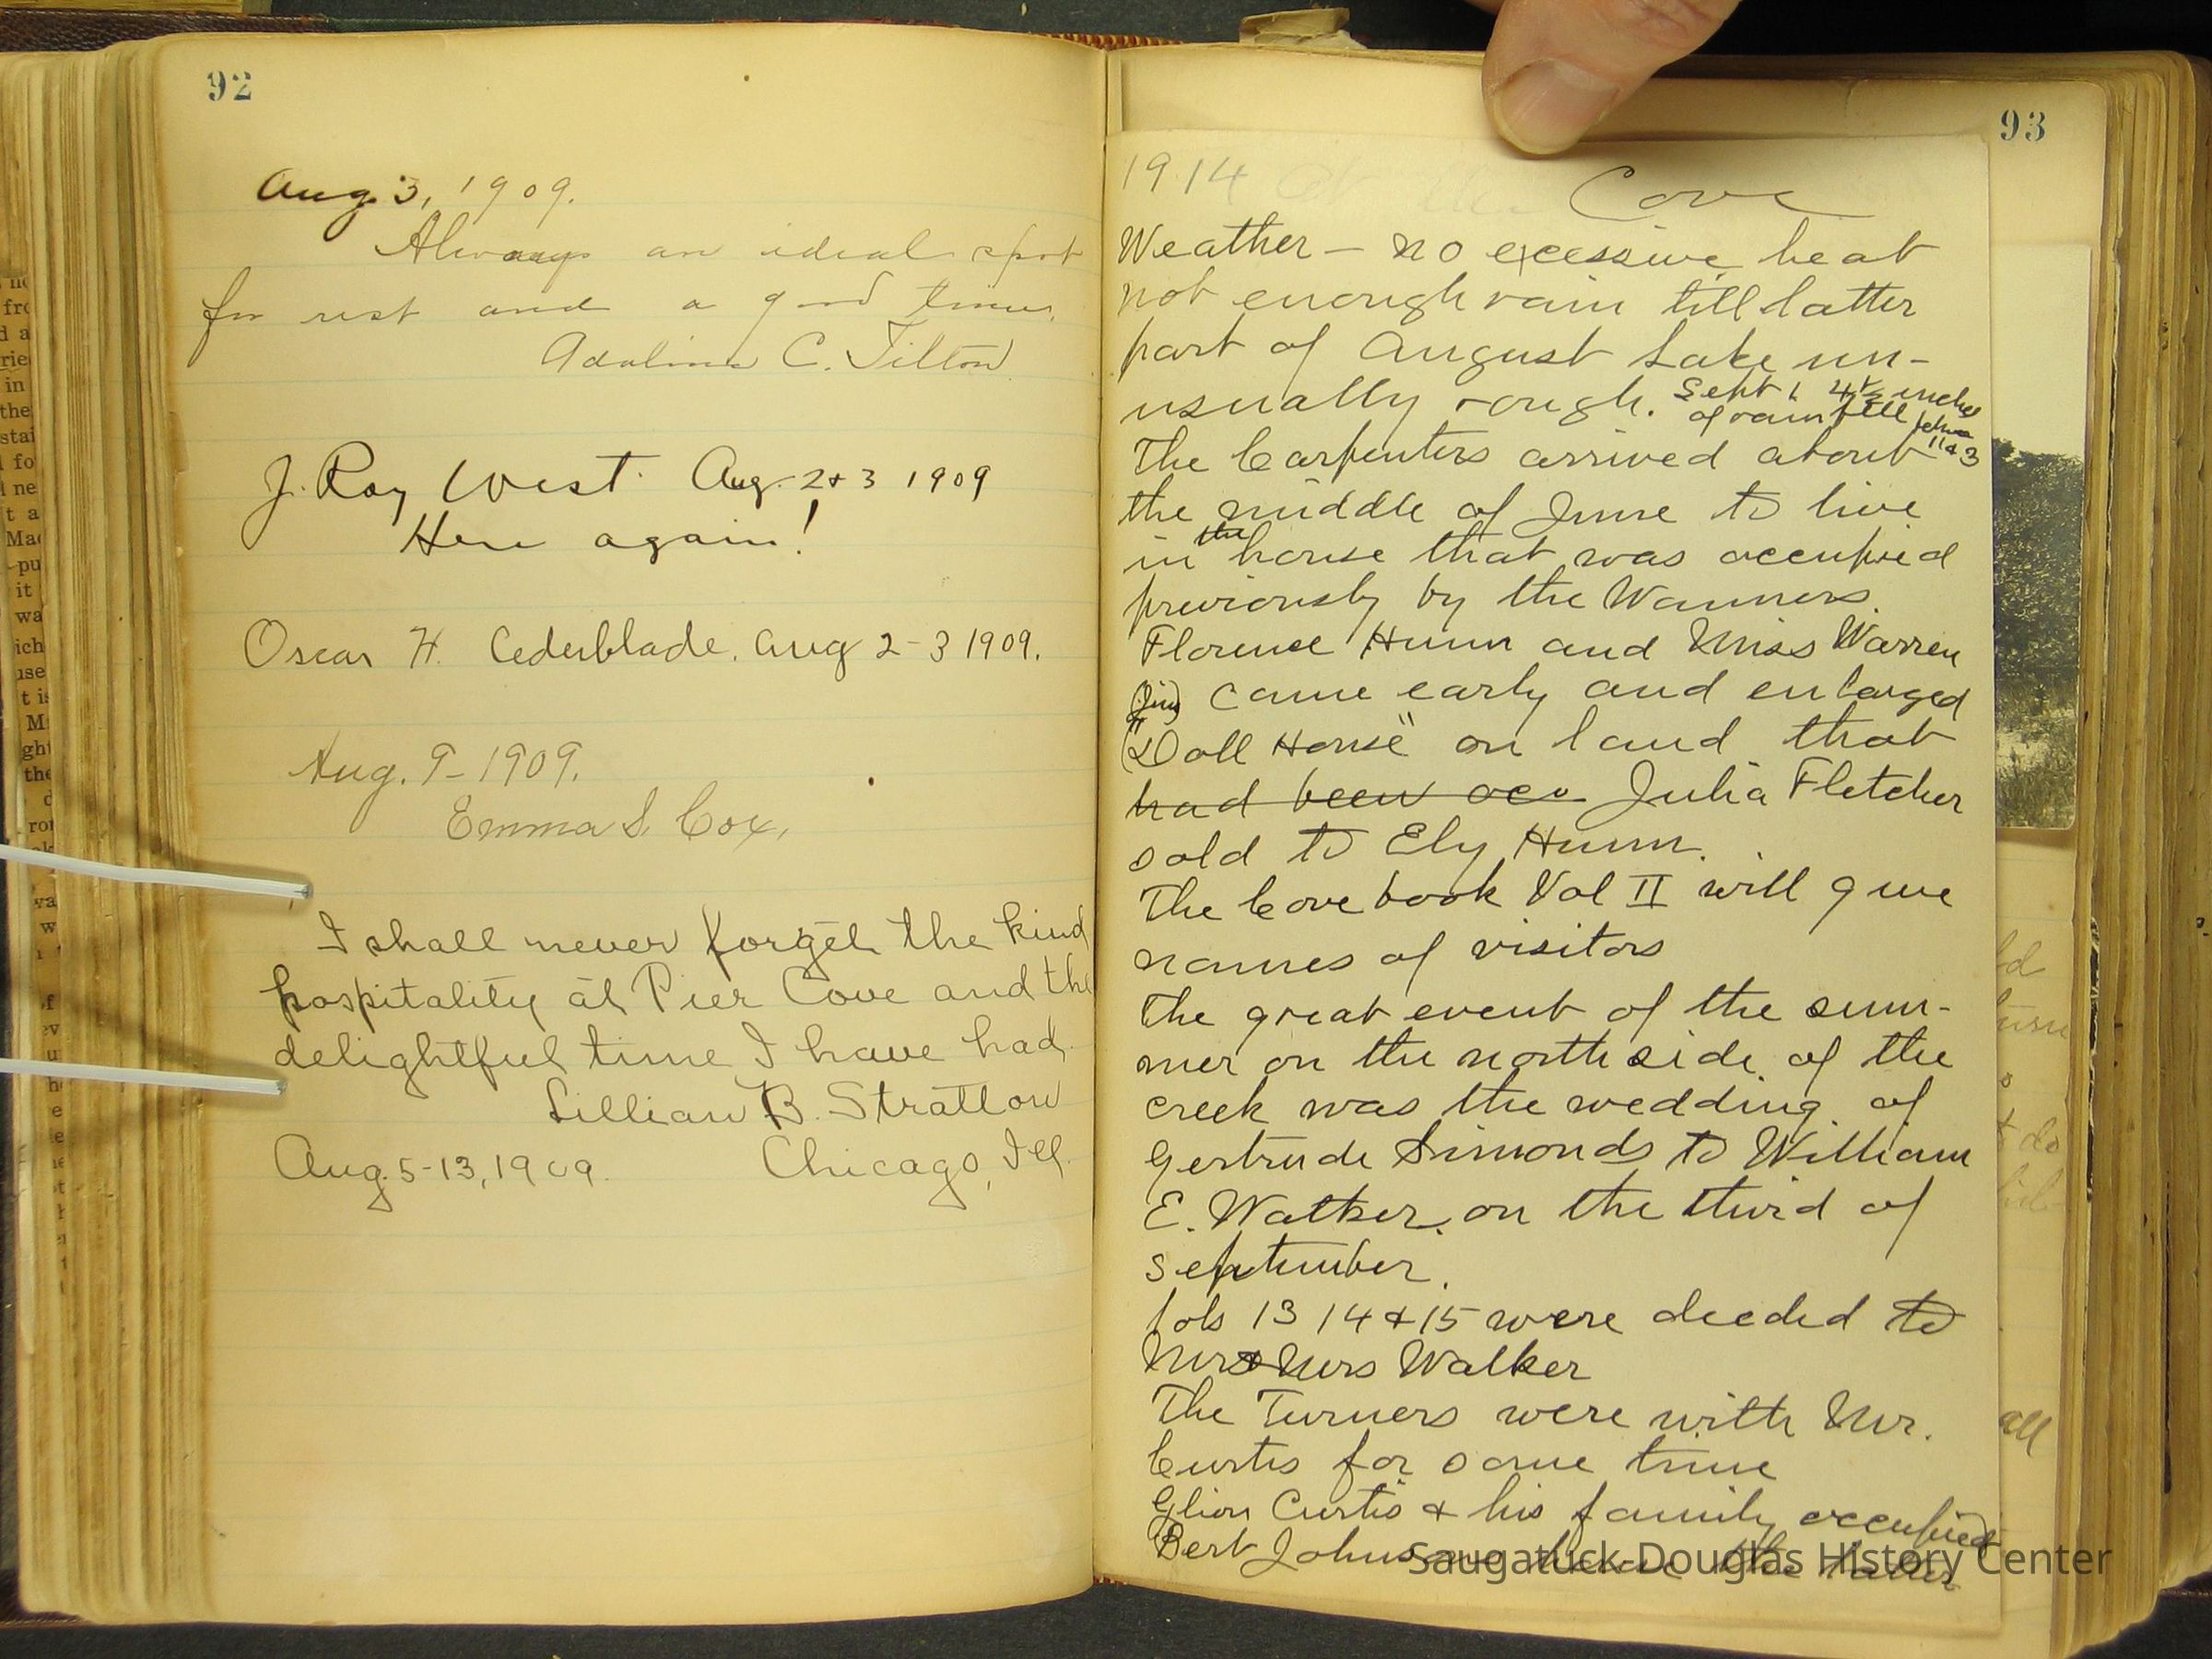 92
Aug. 3, 1909.
Always an ideal spot
for rest and a good time.
Adalina C. Tilton
J. Roy West. Aug. 2 + 3 1909
Here again!
Oscar H. Cederblade. Aug 2-3 1909.
Aug. 9-1909.
Emma S. Cox.
I shall never forget the kind
hospitality at Pier Cove and the
delightful time I have had.
Lillian B. Stratton
Aug. 5-13, 1909. Chicago, Ill.
93
1914 At the Cove
Weather - no excessive heat
not enough rain till latter
part of August Lake un-
usually rough. Sept 1 4½ inches
of rain fell
The Carpenters arrived about 11 & 3
the middle of June to live
in the house that was occupied
previously by the Wanners.
Florence Hunn and Miss Warren
(Jim) came early and enlarged
"Doll House" on land that
had been occ Julia Fletcher
sold to Ely Hunn.
The Cove book Vol II will give
names of visitors
The great event of the sum-
mer on the north side of the
creek was the wedding of
Gertrude Simonds to William
E. Walker, on the third of
September.
Lots 13 14 & 15 were deeded to
Mr & Mrs Walker
The Turners were with Mr.
Curtis for some time
Glion Curtis & his family occupied
Bert Johnsons house the latter
ld
all
Saugatuck-Douglas History Center